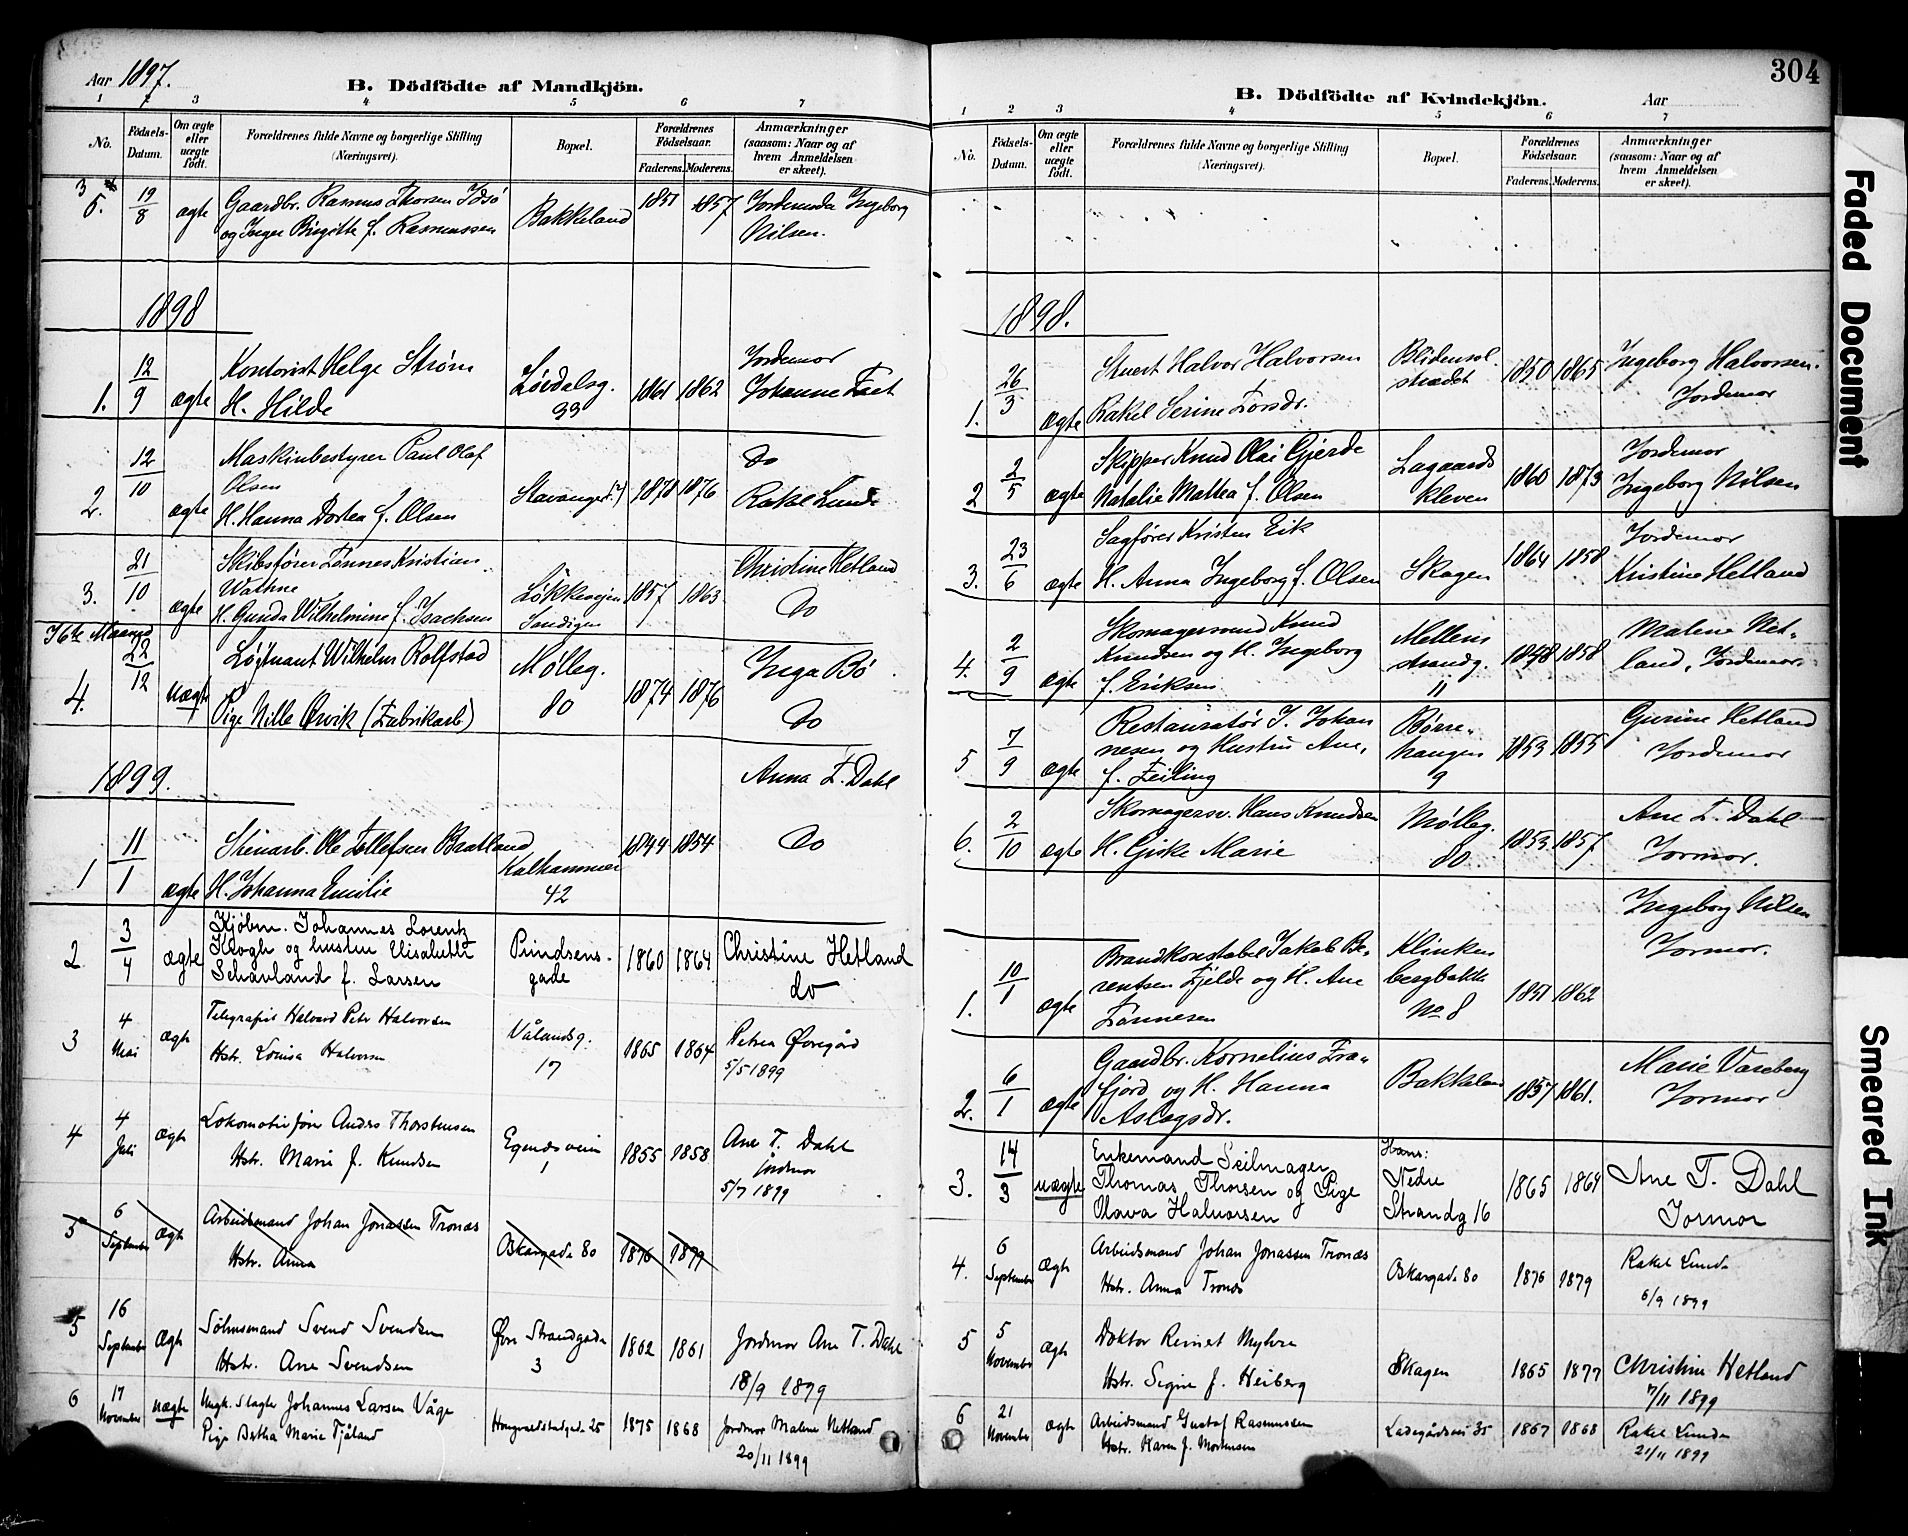 304
Aar 1897.
B. Dödfödte af Mandkjön.
1 2 3 4 5 6 7
No.
Födsels-Datum.
Om ægte eller uægte födt.
Forældrenes fulde Navne og borgerlige Stilling (Næringsvei).
Bopæl.
Forældrenes Födselsaar.
Faderens. Moderens.
Anmærkninger (saasom: Naar og af hvem Anmeldelsen er skeet).
5. 19/8 ægte Gaardbr. Rasmus Thorsen Idsö Bakkeland 1851 1857 Jordemoder Ingeborg
og Inger Birgitte f. Rasmussen Nilsen.
1898
1. 12/9 ægte Kontorist Helge Strøm Lövdalsg. 1861 1862 Jordemor
H. Hilde 33 Johanne Faet
2. 12/10 ægte Maskinbestyrer Paul Olaf Stavanger (?) 1878 1876 Do
Olsen
H. Hanna Dortea f. Olsen Rakel Lunde
3. 21/10 ægte Skibsfører Tønnes Kristian Løkkeveien 1857 1863 Christine Hetland
Wathne
H. Gunda Wilhelmine f. Isachsen Sandigen Do
I 6te Maaned
4. 22/12 uægte Løjtnant Wilhelm Rolfstad Mølleg. 1874 1876 Inga Bö
Pige Nille Ørvik (Fabrikarb) 80 Do
1899. Anna T. Dahl
1 11/1 ægte Stenarb. Ole Tollefsen Bratland Kalhammer 1844 1854 Do
H. Johanna Emilie 42
2. 3/4 ægte Kjöbm. Johannes Lorentz Pundsens- 1860 1864 Christine Hetland
Krogh og hustru Elisabeth gade do
Schavland f. Larsen
3 4 Mai ægte Telegrafist Halvard Peter Halvorsen Vålandsg. 1865 1864 Petrea Øvregård
Hstr. Lovisa Halvorsen 17 5/5 1899
4 4 Juli ægte Lokomotivfører Anders Thorstensen Egendsveien 1855 1858 Ane T. Dahl
Hstr. Marie f. Knudsen 1 jordmor
5/7 1899
5 6 September ægte Arbeidsmand Johan Jonassen Tronæs Oskargade 80 1876 1879
Hstr. Anna
5 16 September ægte Sömand Svend Svendsen Øvre Strandgade 1862 1861 Jordmor Ane T. Dahl
Hstr. Ane Svendsen 3 18/9 1899
6 17 November uægte Ungk. Slagter Johannes Larsen Våge Hougvaldstadgade 25 1875 1868 Jordmor Malene Netland
Pige Bertha Marie Tjåland 20/11 1899
B. Dödfödte af Kvindekjön.
Aar
1 2 3 4 5 6 7
No.
Födsels-Datum.
Om ægte eller uægte födt.
Forældrenes fulde Navne og borgerlige Stilling (Næringsvei).
Bopæl.
Forældrenes Födselsaar.
Faderens. Moderens.
Anmærkninger (saasom: Naar og af hvem Anmeldelsen er skeet).
1898.
1. 26/3 ægte Stuert Halvor Halvorsen Blidensol 1850 1865 Ingeborg Halvorsen.
Rakel Serine Torsdr. strædet Jordemor
2 2/5 ægte Skipper Knud Olai Gjerde Lagaards 1860 1873 Jordemor
Natalie Mattea f. Olsen kleven Ingeborg Nilsen
3. 23/6 ægte Sagfører Kristen Eik Skagen 1864 1858 Jordemor
H. Anna Ingeborg f. Olsen Kristine Hetland
4. 2/9 ægte Skomagersvend Knud Mellem 1848 1858 Malene Net-
Knudsen og H. Ingeborg strandg. land, Jordemor.
f. Eriksen 11
5 7/9 ægte Restauratør J. Johan Børre- 1853 1855 Gurine Hetland
nesen og Hustru Ane, haugen Jordemor
f. Feiling 9
6. 2/10 ægte Skomagersv. Hans Knudsen Mølleg. 1853 1857 Ane T. Dahl
H. Giske Marie 80 Jormor.
1. 10/1 ægte Brandkonstabel Jakob Be- Klinken 1851 1862 Ingeborg Nilsen
rentsen Fjelde og H. Ane bergbakke Jormor.
Tønnesen No 8
2. 6/1 ægte Gaardbr. Kornelius Fra- Bakkeland 1857 1861. Marie Vareberg
fjord og H. Hanna Jormor
Aslagsdr.
3. 14/3 uægte Enkemand Seilmager Hans: 1865 1864 Ane T. Dahl
Thomas Thorsen og Pige Nedre Jormor
Olava Halvorsen Strandg 16
4. 6 September ægte Arbeidsmand Johan Jonassen Tronæs Oskargade 80 1876 1879 Rakel Lunde
Hstr. Anna Tronæs 6/9 1899
5 5 November ægte Doktor Reinet Myhre Skagen 1865 1877 Christine Hetland
Hstr. Signe f. Heiberg 7/11 1899
6 21 November ægte Arbeidsmand Gustaf Rasmussen Ladegårdsvei 35 1867 1868 Rakel Lunde
Hstr. Karen f. Mortensen 21/11 1899
Faded Document
Smeared Ink